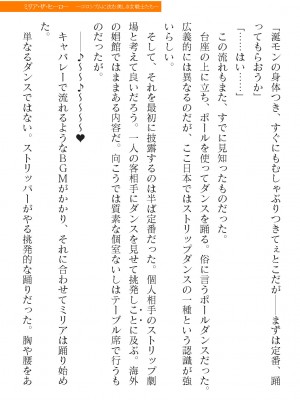 「涎モンの身体つき、すぐにもむしゃぶりつきてぇとこだが――まずは定番、踊
ってもらおうか」
「……はい……」
この流れもまた、すでに見知ったものだった。
台座の上に立ち、ポールを使ってダンスを踊る。俗に言うポールダンスだった。
広義的には異なるのだが、ここ日本ではストリップダンスの一種という認識が強
いらしい。
そして、それを最初に披露するのは半ば定番だった。個人相手のストリップ劇
場と考えて良いだろう。一人の客相手にダンスを見せて挑発しことに及ぶ。海外
の娼館ではままある内容だ。向こうでは質素な個室ないしはテーブル席で行うも
のだったが。
――♪～♪～♪～～♥
キャバレーで流れるようなＢＧＭがかかり、それに合わせてミリアは踊り始め
た。
単なるダンスではない。ストリッパーがやる挑発的な踊りだった。胸や腰をあ